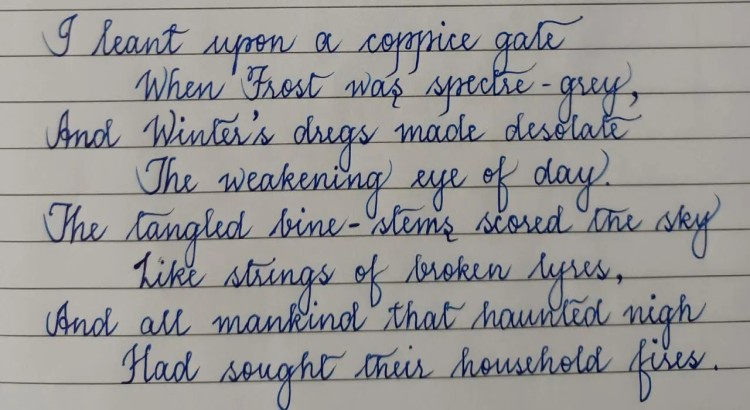 I leant upon a coppice gate
When Frost was spectre-grey,
And Winter's dregs made desolate
The weakening eye of day.
The tangled bine-stems scored the sky
Like strings of broken lyres,
And all mankind that haunted nigh
Had sought their household fires.